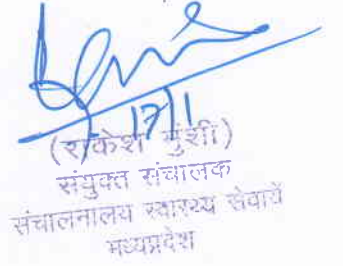 17/1
(राकेश मुंशी)
संयुक्त संचालक
संचालनालय स्वास्थ्य सेवायें
मध्यप्रदेश